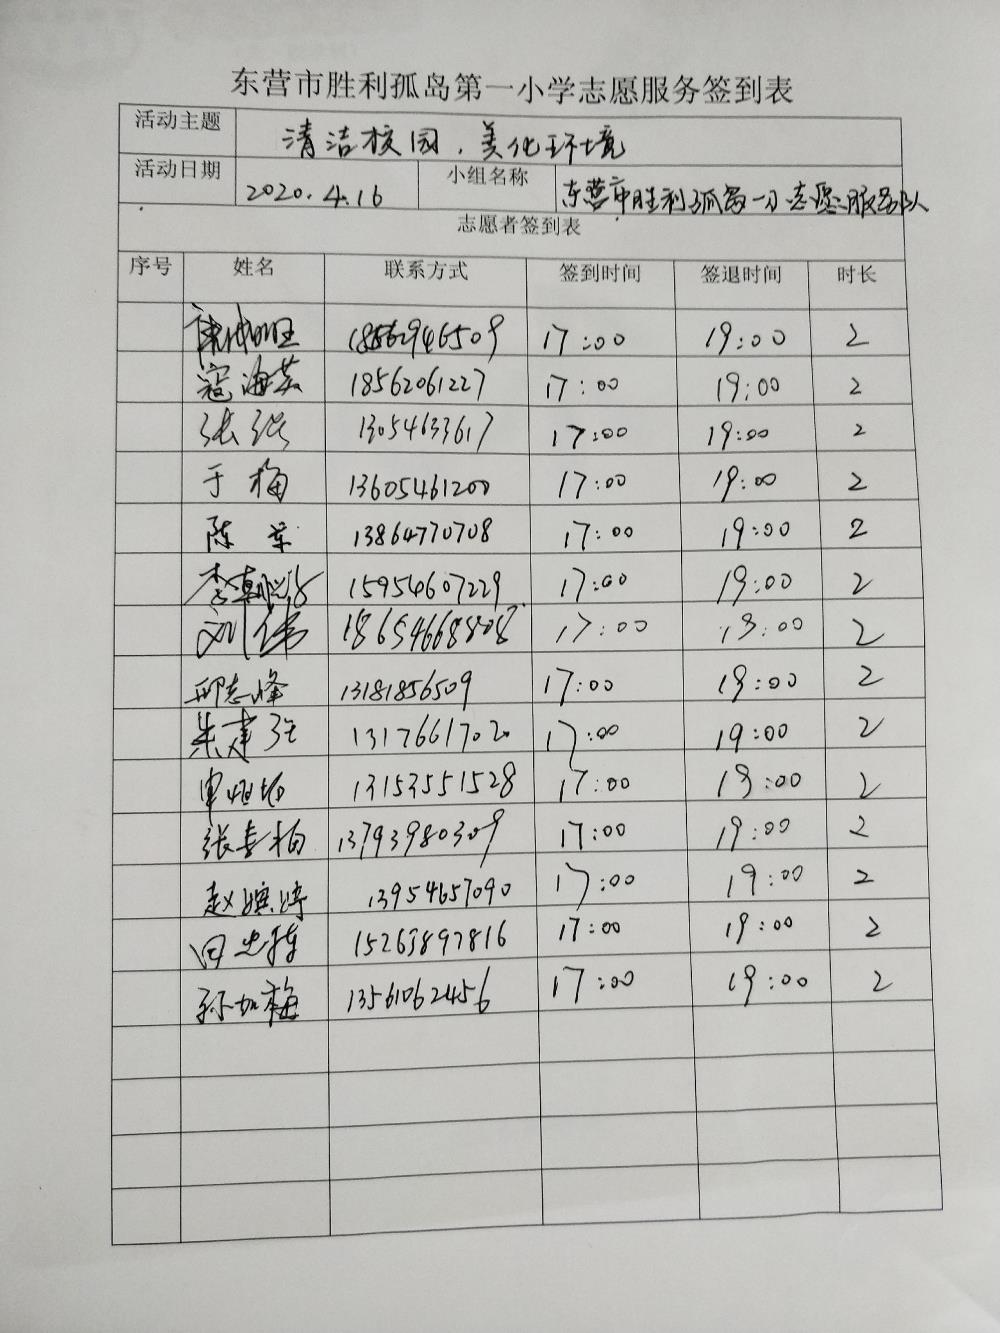 东营市胜利孤岛第一小学志愿服务签到表
活动主题 清洁校园,美化环境
活动日期 2020.4.16 小组名称 东营市胜利孤岛一小志愿服务队
志愿者签到表
序号 姓名 联系方式 签到时间 签退时间 时长
18562946509 17:00 19:00 2
寇海英 18562061227 17:00 19:00 2
张强 13054633617 17:00 19:00 2
于梅 13605461200 17:00 19:00 2
陈军 13864770708 17:00 19:00 2
李 15954607229 17:00 19:00 2
刘伟 18654668808 17:00 19:00 2
邢志峰 13181856509 17:00 19:00 2
朱建强 13176617020 17:00 19:00 2
13153551528 17:00 19:00 2
张春梅 13793980309 17:00 19:00 2
赵 13954657090 17:00 19:00 2
田 15263897816 17:00 19:00 2
孙加梅 13561062456 17:00 19:00 2